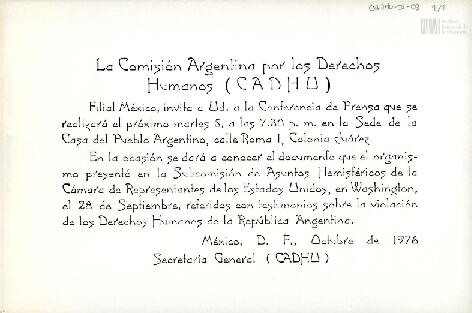 CADHU-01-03 1/1
La Comisión Argentina por los Derechos
Humanos ( C A D H U )
Filial México, invita a Ud. a la Conferencia de Prensa que se
realizará el próximo martes 5, a las 7.30 p. m. en la Sede de la
Casa del Pueblo Argentino, calle Roma 1, Colonia Juárez.
En la ocasión se dará a conocer el documento que el organis-
mo presentó en la Subcomisión de Asuntos Hemisféricos de la
Cámara de Representantes de los Estados Unidos, en Washington,
el 28 de Septiembre, referidos con testimonios sobre la violación
de los Derechos Humanos de la República Argentina.
México, D. F., Octubre de 1976
Secretaría General ( CADHU )